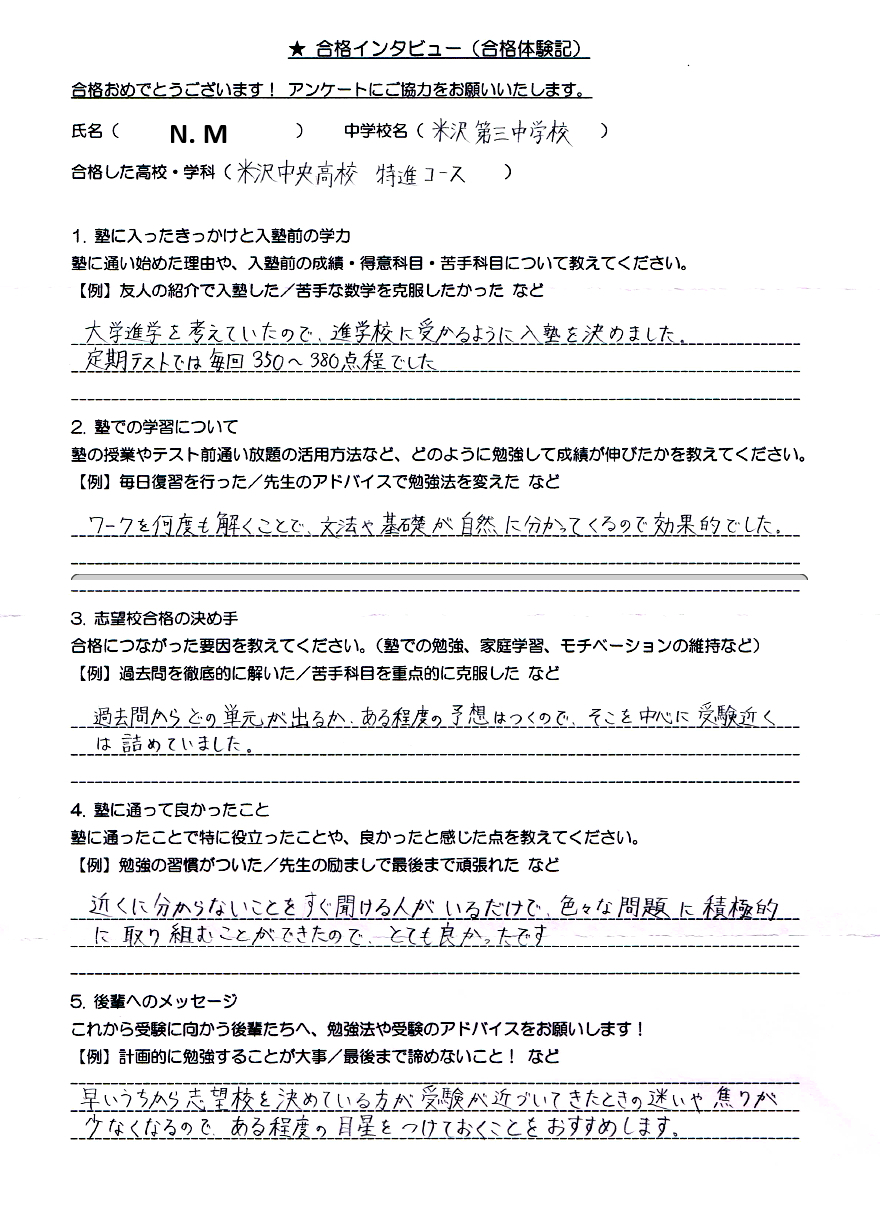 ★ 合格インタビュー（合格体験記）
合格おめでとうございます！ アンケートにご協力をお願いいたします。
氏名（ N. M ） 中学校名（ 米沢第三中学校 ）
合格した高校・学科（ 米沢中央高校 特進コース ）
1. 塾に入ったきっかけと入塾前の学力
塾に通い始めた理由や、入塾前の成績・得意科目・苦手科目について教えてください。
【例】友人の紹介で入塾した／苦手な数学を克服したかった など
大学進学を考えていたので、進学校に受かるように入塾を決めました。
定期テストでは毎回350〜380点程でした
2. 塾での学習について
塾の授業やテスト前通い放題の活用方法など、どのように勉強して成績が伸びたかを教えてください。
【例】毎日復習を行った／先生のアドバイスで勉強法を変えた など
ワークを何度も解くことで、文法や基礎が自然に分かってくるので効果的でした。
3. 志望校合格の決め手
合格につながった要因を教えてください。（塾での勉強、家庭学習、モチベーションの維持など）
【例】過去問を徹底的に解いた／苦手科目を重点的に克服した など
過去問からどの単元が出るか、ある程度の予想はつくので、そこを中心に受験近く
は詰めていました。
4. 塾に通って良かったこと
塾に通ったことで特に役立ったことや、良かったと感じた点を教えてください。
【例】勉強の習慣がついた／先生の励ましで最後まで頑張れた など
近くに分からないことをすぐ聞ける人がいるだけで、色々な問題に積極的
に取り組むことができたので、とても良かったです
5. 後輩へのメッセージ
これから受験に向かう後輩たちへ、勉強法や受験のアドバイスをお願いします！
【例】計画的に勉強することが大事／最後まで諦めないこと！ など
早いうちから志望校を決めている方が受験が近づいてきたときの迷いや焦りが
少なくなるので、ある程度の目星をつけておくことをおすすめします。